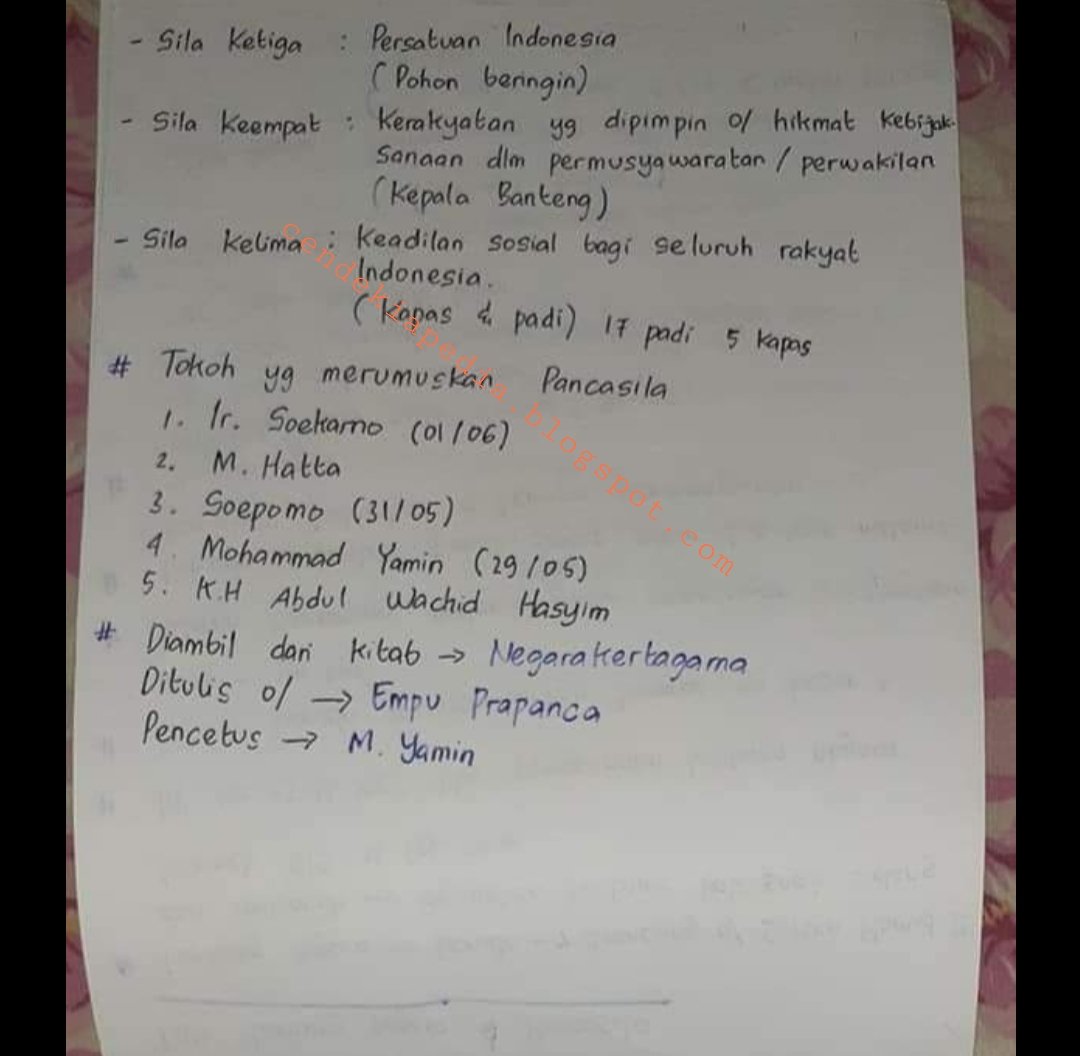 - Sila Ketiga : Persatuan Indonesia
(Pohon beringin)
- Sila Keempat : Kerakyatan yg dipimpin o/ hikmat Kebijak-
sanaan dlm permusyawaratan / perwakilan
(Kepala Banteng)
- Sila Kelima : Keadilan sosial bagi seluruh rakyat
Indonesia.
(Kapas & padi) 17 padi 5 kapas
# Tokoh yg merumuskan Pancasila
1. Ir. Soekarno (01/06)
2. M. Hatta
3. Soepomo (31/05)
4. Mohammad Yamin (29/05)
5. K.H Abdul Wachid Hasyim
# Diambil dari kitab → Negarakertagama
Ditulis o/ → Empu Prapanca
Pencetus → M. Yamin
cendekiapedia.blogspot.com